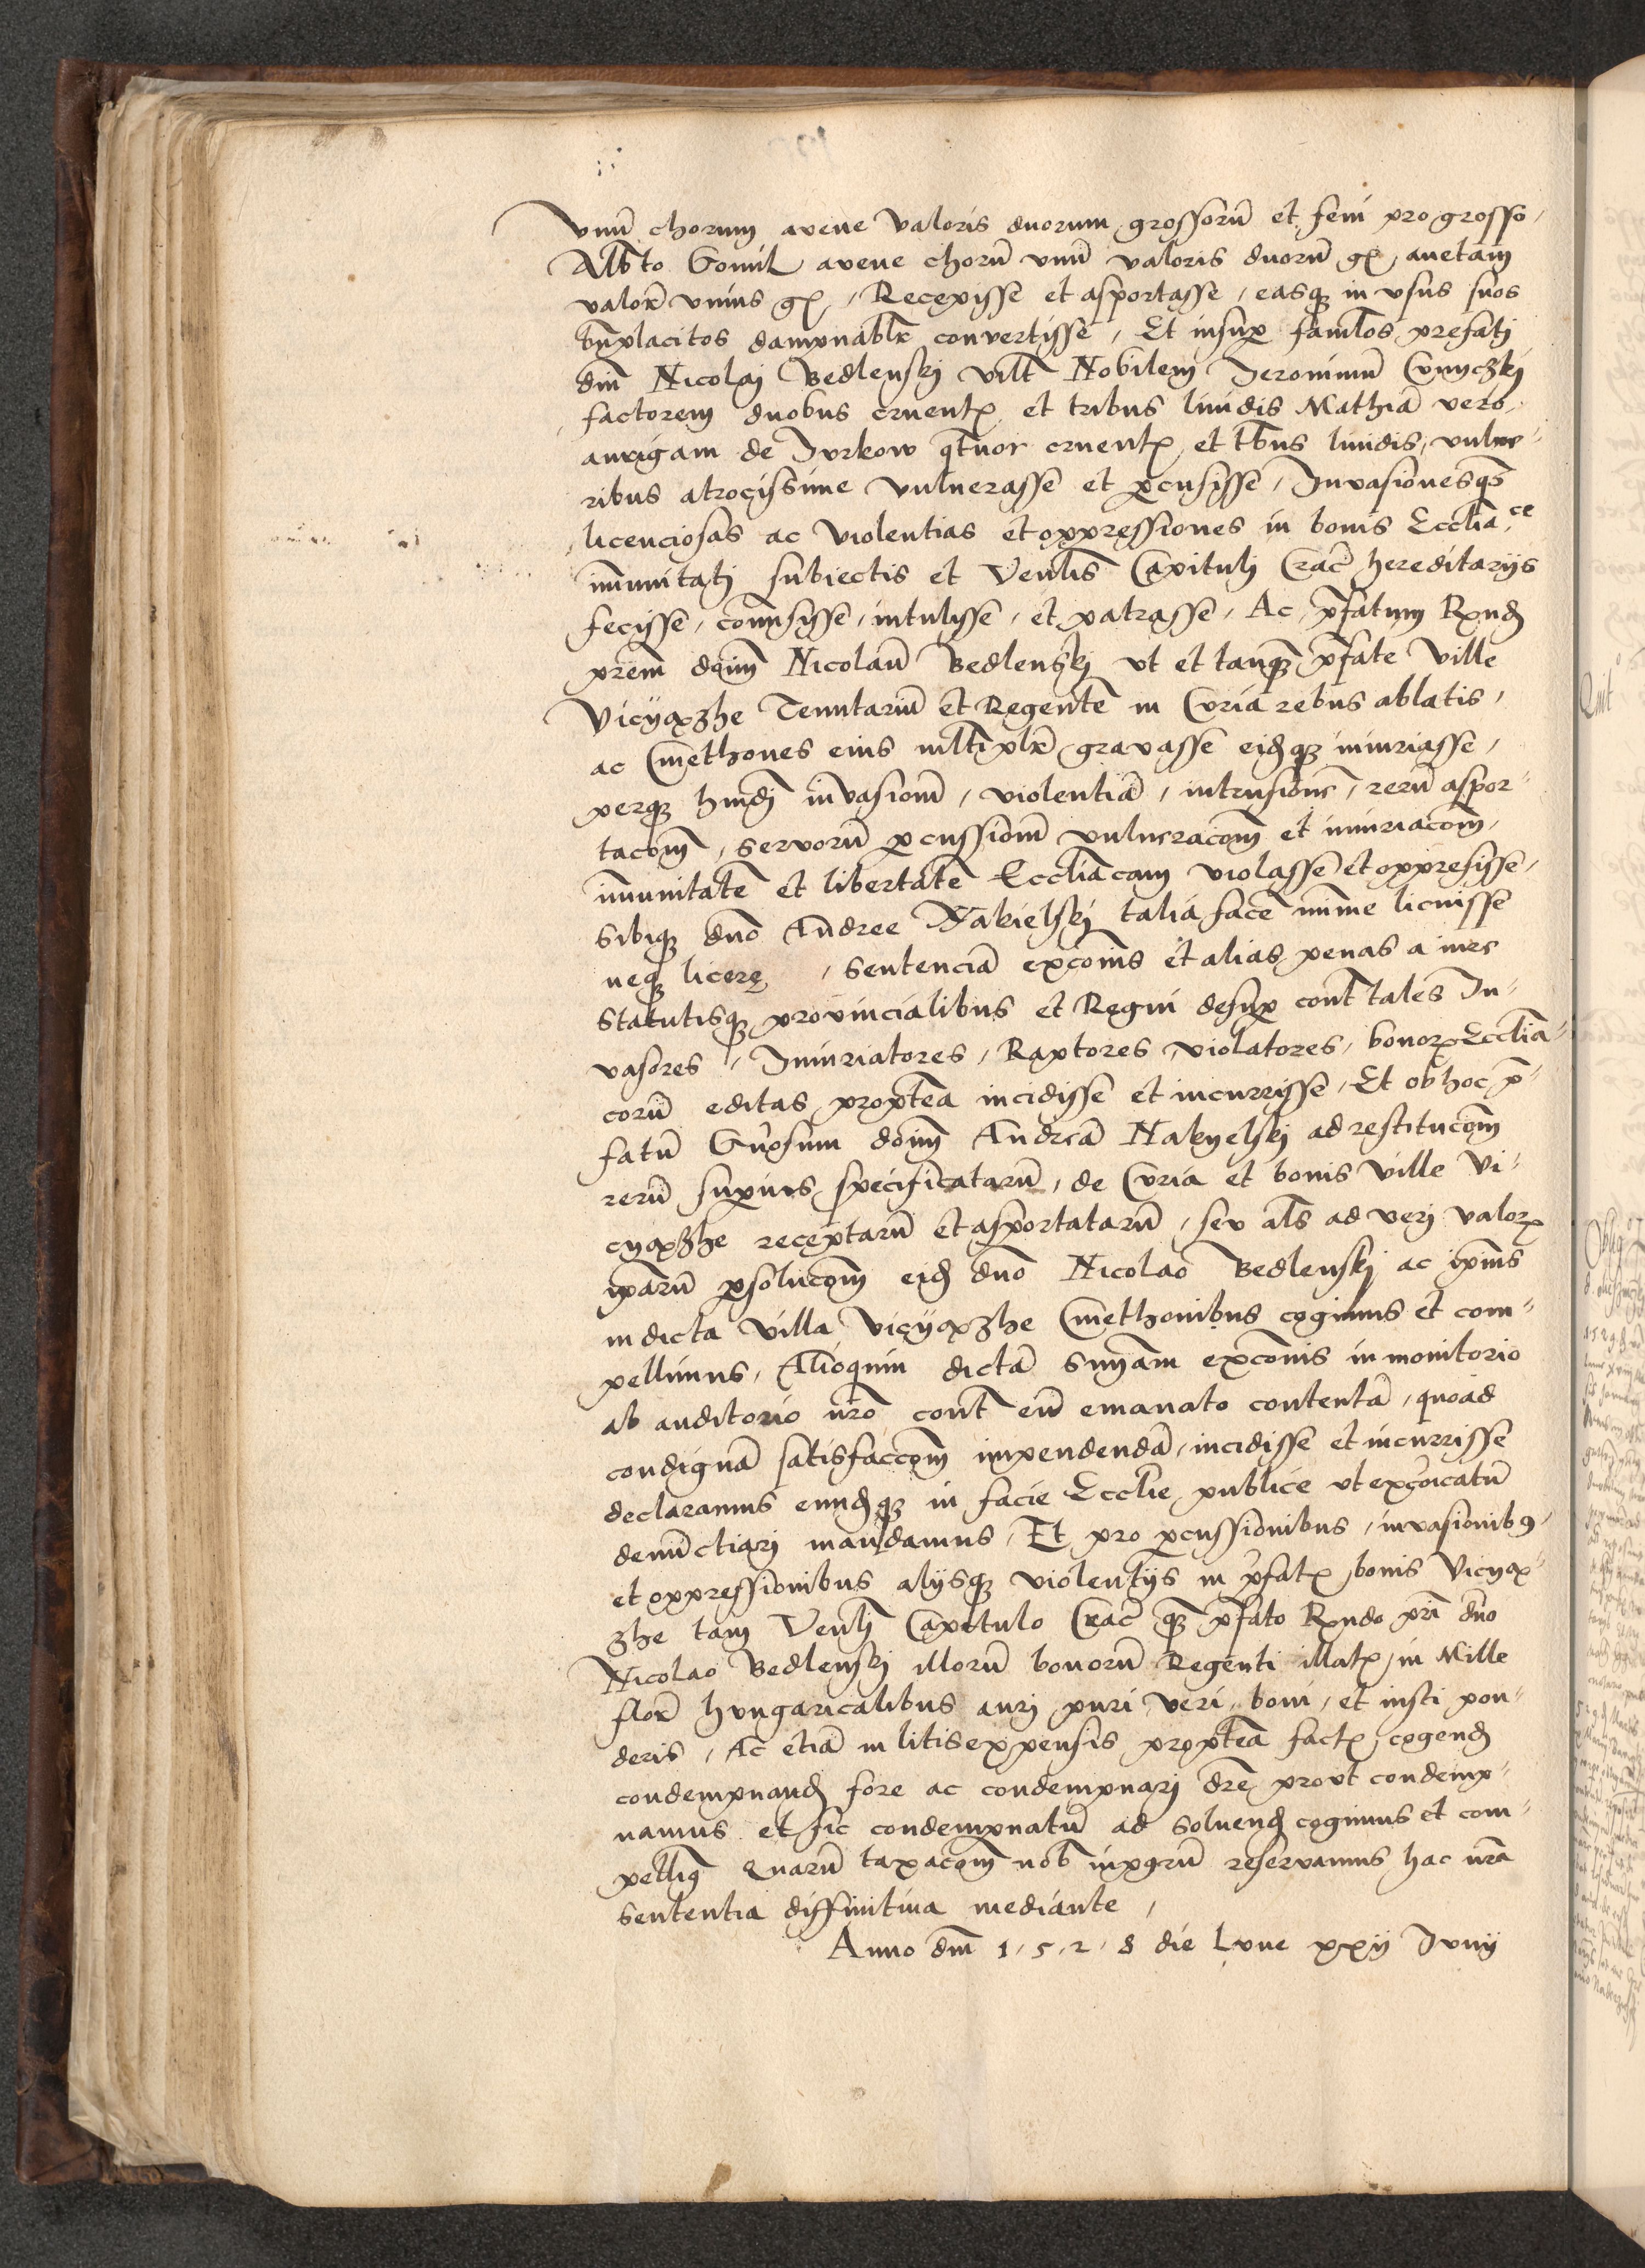 Vnu͂ chorum avene valoris duorum grossoru͂ et feni pro grosso,
Alb̃to Gomul avene choru͂ vnu͂ valoris duoru͂ gr̃, anetam
valor̃ vnius gr̃, Recepisse et asportasse, easq₃ in vsus suos
bn̄placitos dampnabl̃r convertisse, Et insup̱ faml̃os prefati
dm̃ Nicolaj Bedlenskj vil̃t Nobilem Jeronimu͂
factorem duobus cruent̃ et tribus liuidis Mathia͂ vero
aurigam de Jurkow q̃tuor cruent̃ et t̃bus liuidis, vulne-
ribus atrocissime vulnerasse et p̱cusisse, Invasionesq₃
licenciosas ac violentias et oppressiones in bonis Eccl̃ia.ce
im̃unitatj subiectis et Ven̄lis Capituli Crac̃ hereditarijs
fecisse, com̃isisse, intulisse, et patrasse, Ac p̃fatum Rn̄d
prem̃ dn̄m Nicolau͂ Bedlenskj vt et tanq̃₃ p̃fate ville
Viciaxzhe Tenutariu͂ et Regente͂ in Curia rebus ablatis,
ac Cmethones eius ml̃tipl̃r gravasse eid̃q₃ iniuriasse,
perq₃ hm̃di invasiom̃, violentia͂, intrusione͂, reru͂ aspor-
tacom̃, servoru͂ p̱cussiom̃ vulneracom̃ et iniuriacom̃,
im̃unitate͂ et libertate͂ Eccl̃iacam violasse et oppresisse,
sibiq₃ dn̄o Andree Nakielskj talia face͂ mim̃e licuisse
neq₃ licere, sentencia͂ exco͂is et alias penas a iure
statutisq₃ provincialibus et Regni desup̱ cont̃ tales In-
vasores, Iniuriatores, Raptores, violatores, bonor̃ Eccl̃ia-
coru͂ editas propt̃ea incidisse et incurrisse, Et ob hoc p̃-
fatu͂ Gn̄osum dn̄m Andrea͂ Nakyelskj ad restitucom̃
reru͂ sup̱ius specificataru͂, de Curia et bonis ville Vi-
cyaxzhe receptaru͂ et asportataru͂, seu al̃s ad verj valor̃
ip̃aru͂ p̱solucom̃ eid̃ dn̄o Nicolao Bedlenskj ac ip̃ius
in dicta villa Viciyaxzhe Cmethonibus cogimus et com-
pellimus, Alioquin dicta͂ sn̄iam exco͂is in monitorio
ab auditorio n̄ro cont̃ eu͂ emanato contenta͂, quoad
condigna͂ satisfaccom̃ impendenda͂, incidisse et incurrisse
declaramus eund̃q₃ in facie Eccl̃ie publice vt exco͂icatu͂
denu͂ctiarj mandamus, Et pro p̱cussionibus, invasionib9
et oppressionibus alijsq₃ violentijs in p̃fat̃ bonis Vicyax-
zhe tam Ven̄li Capitulo Crac̃ q̃₃ p̃fato Rn̄do pr̃i dn̄o
Nicolao Bedlenskj illoru͂ bonoru͂ Regenti illat̃, in Mille
flor̃ hvngaricalibus aurj puri veri boni, et iusti pon-
deris, Ac etia͂ in litis expensis propt̃ea fact̃ cogend̃
condempnand̃ fore ac condempnarj d̃re prout condemp-
namus et sic condempnatu͂ ad soluend̃ cogimus et com-
pellim9 Quaru͂ taxacom̃ nob̃ inp9ru͂ reservamus hac n̄ra
sententia diffinitiua mediante,
Anno dm̃ 1.5.2.8 die Lune xxij Junij